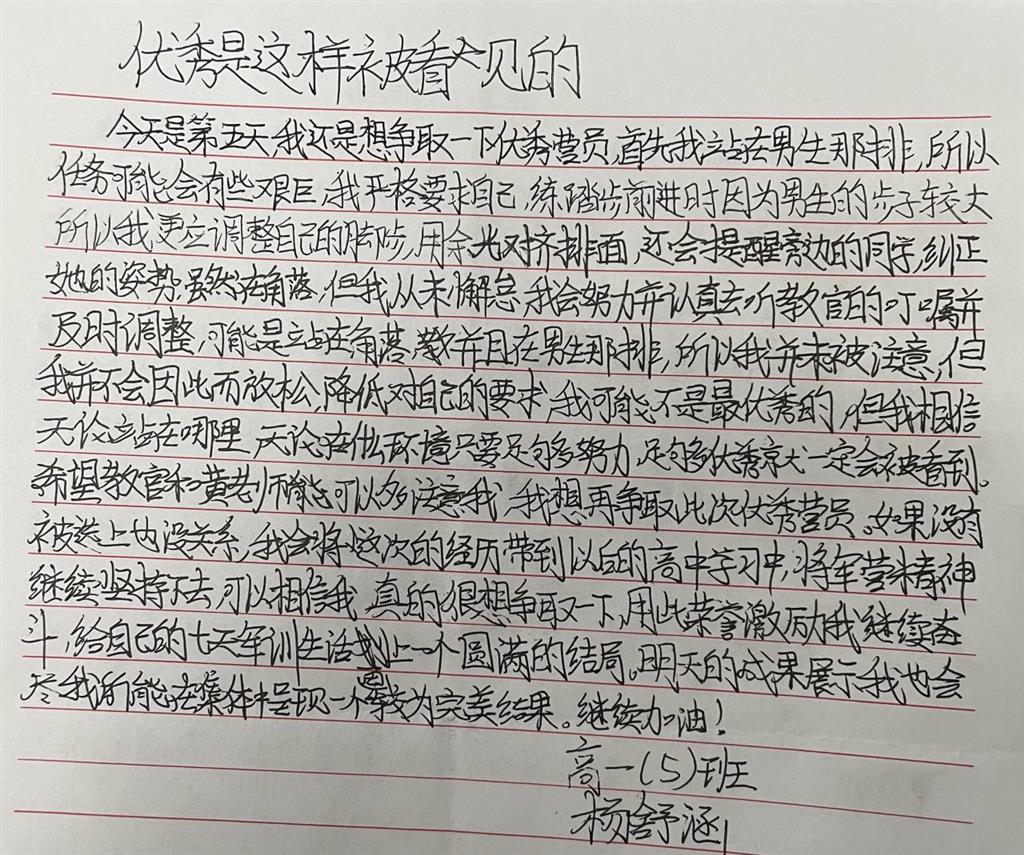 优秀是这样被看见的
今天是第五天,我还是想争取一下优秀营员,首先我站在男生那排,所以
任务可能会有些艰巨,我严格要求自己,练踏步前进时因为男生的步子较大
所以我更应调整自己的脚步,用余光对齐排面,还会提醒旁边的同学,纠正
她的姿势,虽然在角落,但我从未懈怠,我会努力并认真去听教官的叮嘱并
及时调整,可能是站在角落,并且在男生那排,所以我并未被注意,但
我并不会因此而放松,降低对自己的要求,我可能不是最优秀的,但我相信
无论站在哪里,无论在什么环境只要足够多努力,足够多优秀就一定会被看到。
希望教官和黄老师能可以多注意我,我想再争取此次优秀营员。如果没有
被选上也没关系,我会将这次的经历带到以后的高中学习中,将军营精神
继续坚持下去,可以相信我,真的很想争取一下,用此荣誉激励我继续奋
斗,给自己的七天军训生活画上一个圆满的结局。明天的成果展示我也会
尽我所能在集体中呈现一个较为完美结果。继续加油!
高一(5)班
杨舒涵